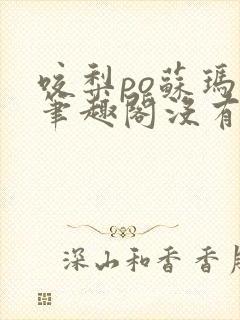 咬梨po蘇瑪
筆趣閣沒有
深山和香香